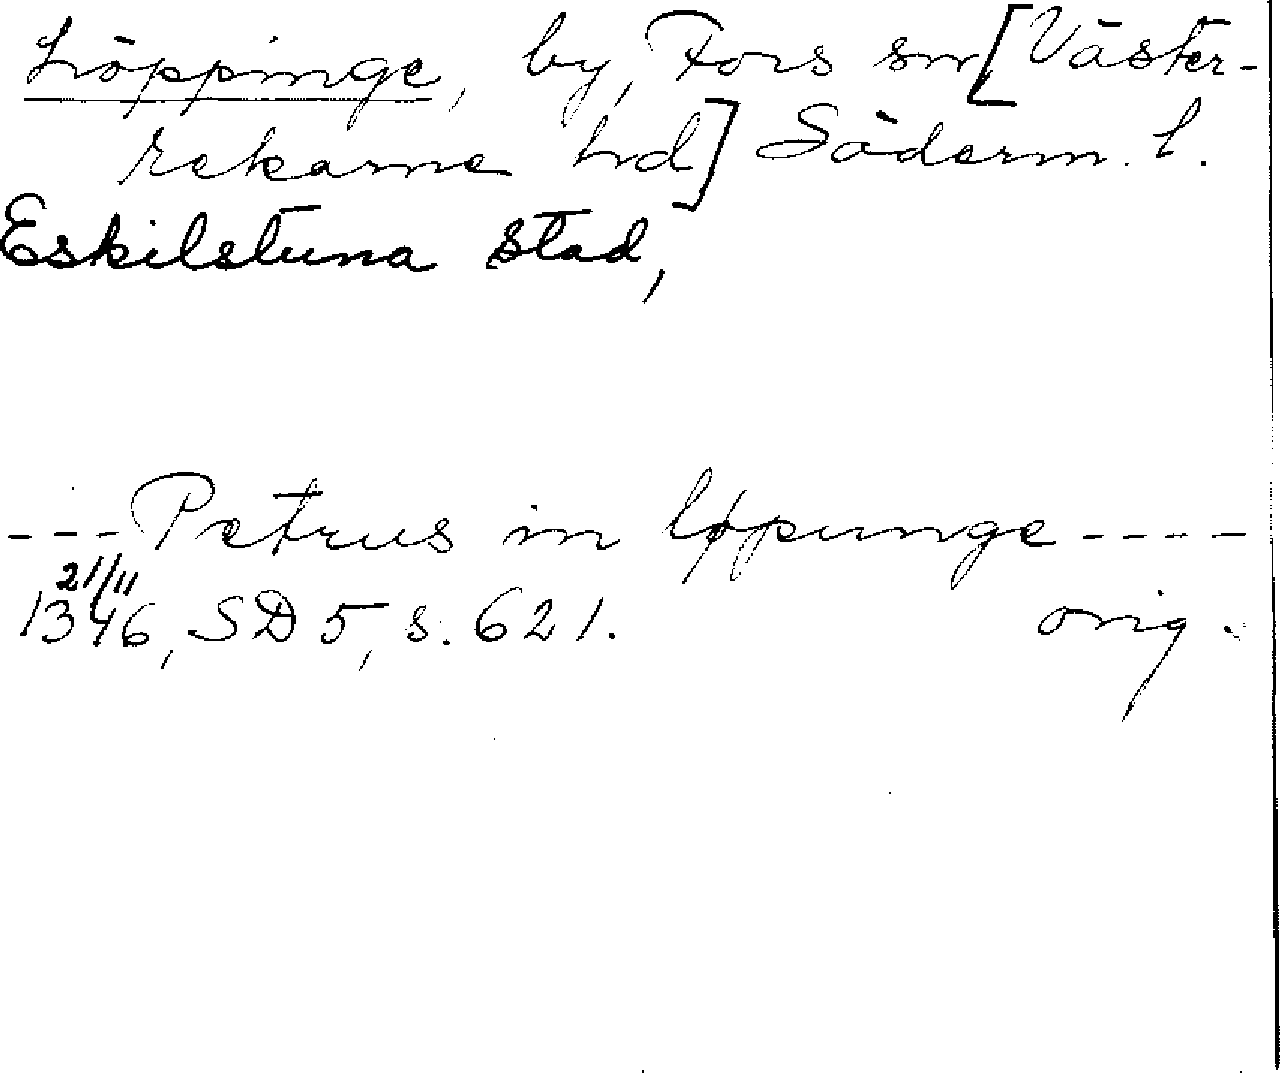 Löppinge, by, Fors sn [Väster-
rekarne hd] Söderm. l.
Eskilstuna stad,
--- Petrus in løpunge ----
21/11
1346, SD 5, s. 621. orig.